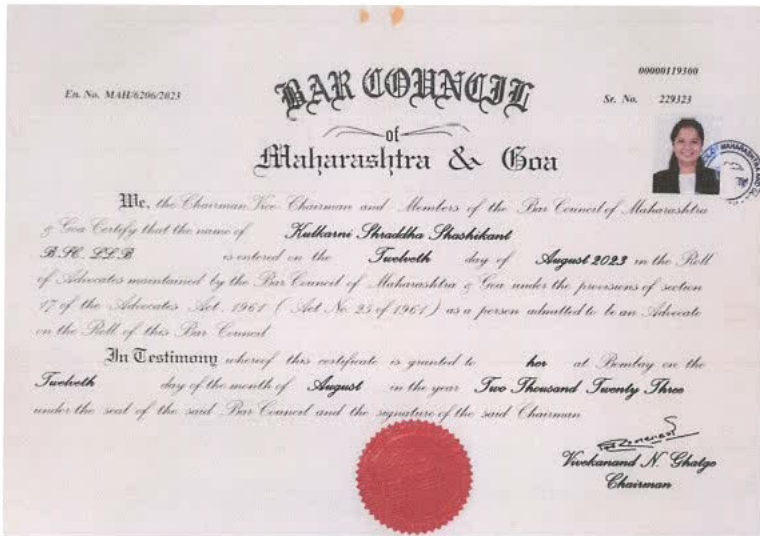 00000119300
En. No. MAH/6206/2023
BAR COUNCIL
Sr. No. 229323
of
Maharashtra & Goa
We, the Chairman Vice Chairman and Members of the Bar Council of Maharashtra
& Goa Certify that the name of Kulkarni Shraddha Shashikant
B.SC. LLB is entered on the Twelveth day of August 2023 in the Roll
of Advocates maintained by the Bar Council of Maharashtra & Goa under the provisions of section
17 of the Advocates Act, 1961 ( Act No. 25 of 1961 ) as a person admitted to be an Advocate
on the Roll of this Bar Council
In Testimony whereof this certificate is granted to her at Bombay on the
Twelveth day of the month of August in the year Two Thousand Twenty Three
under the seal of the said Bar Council and the signature of the said Chairman
Vivekanand N. Ghatge
Chairman